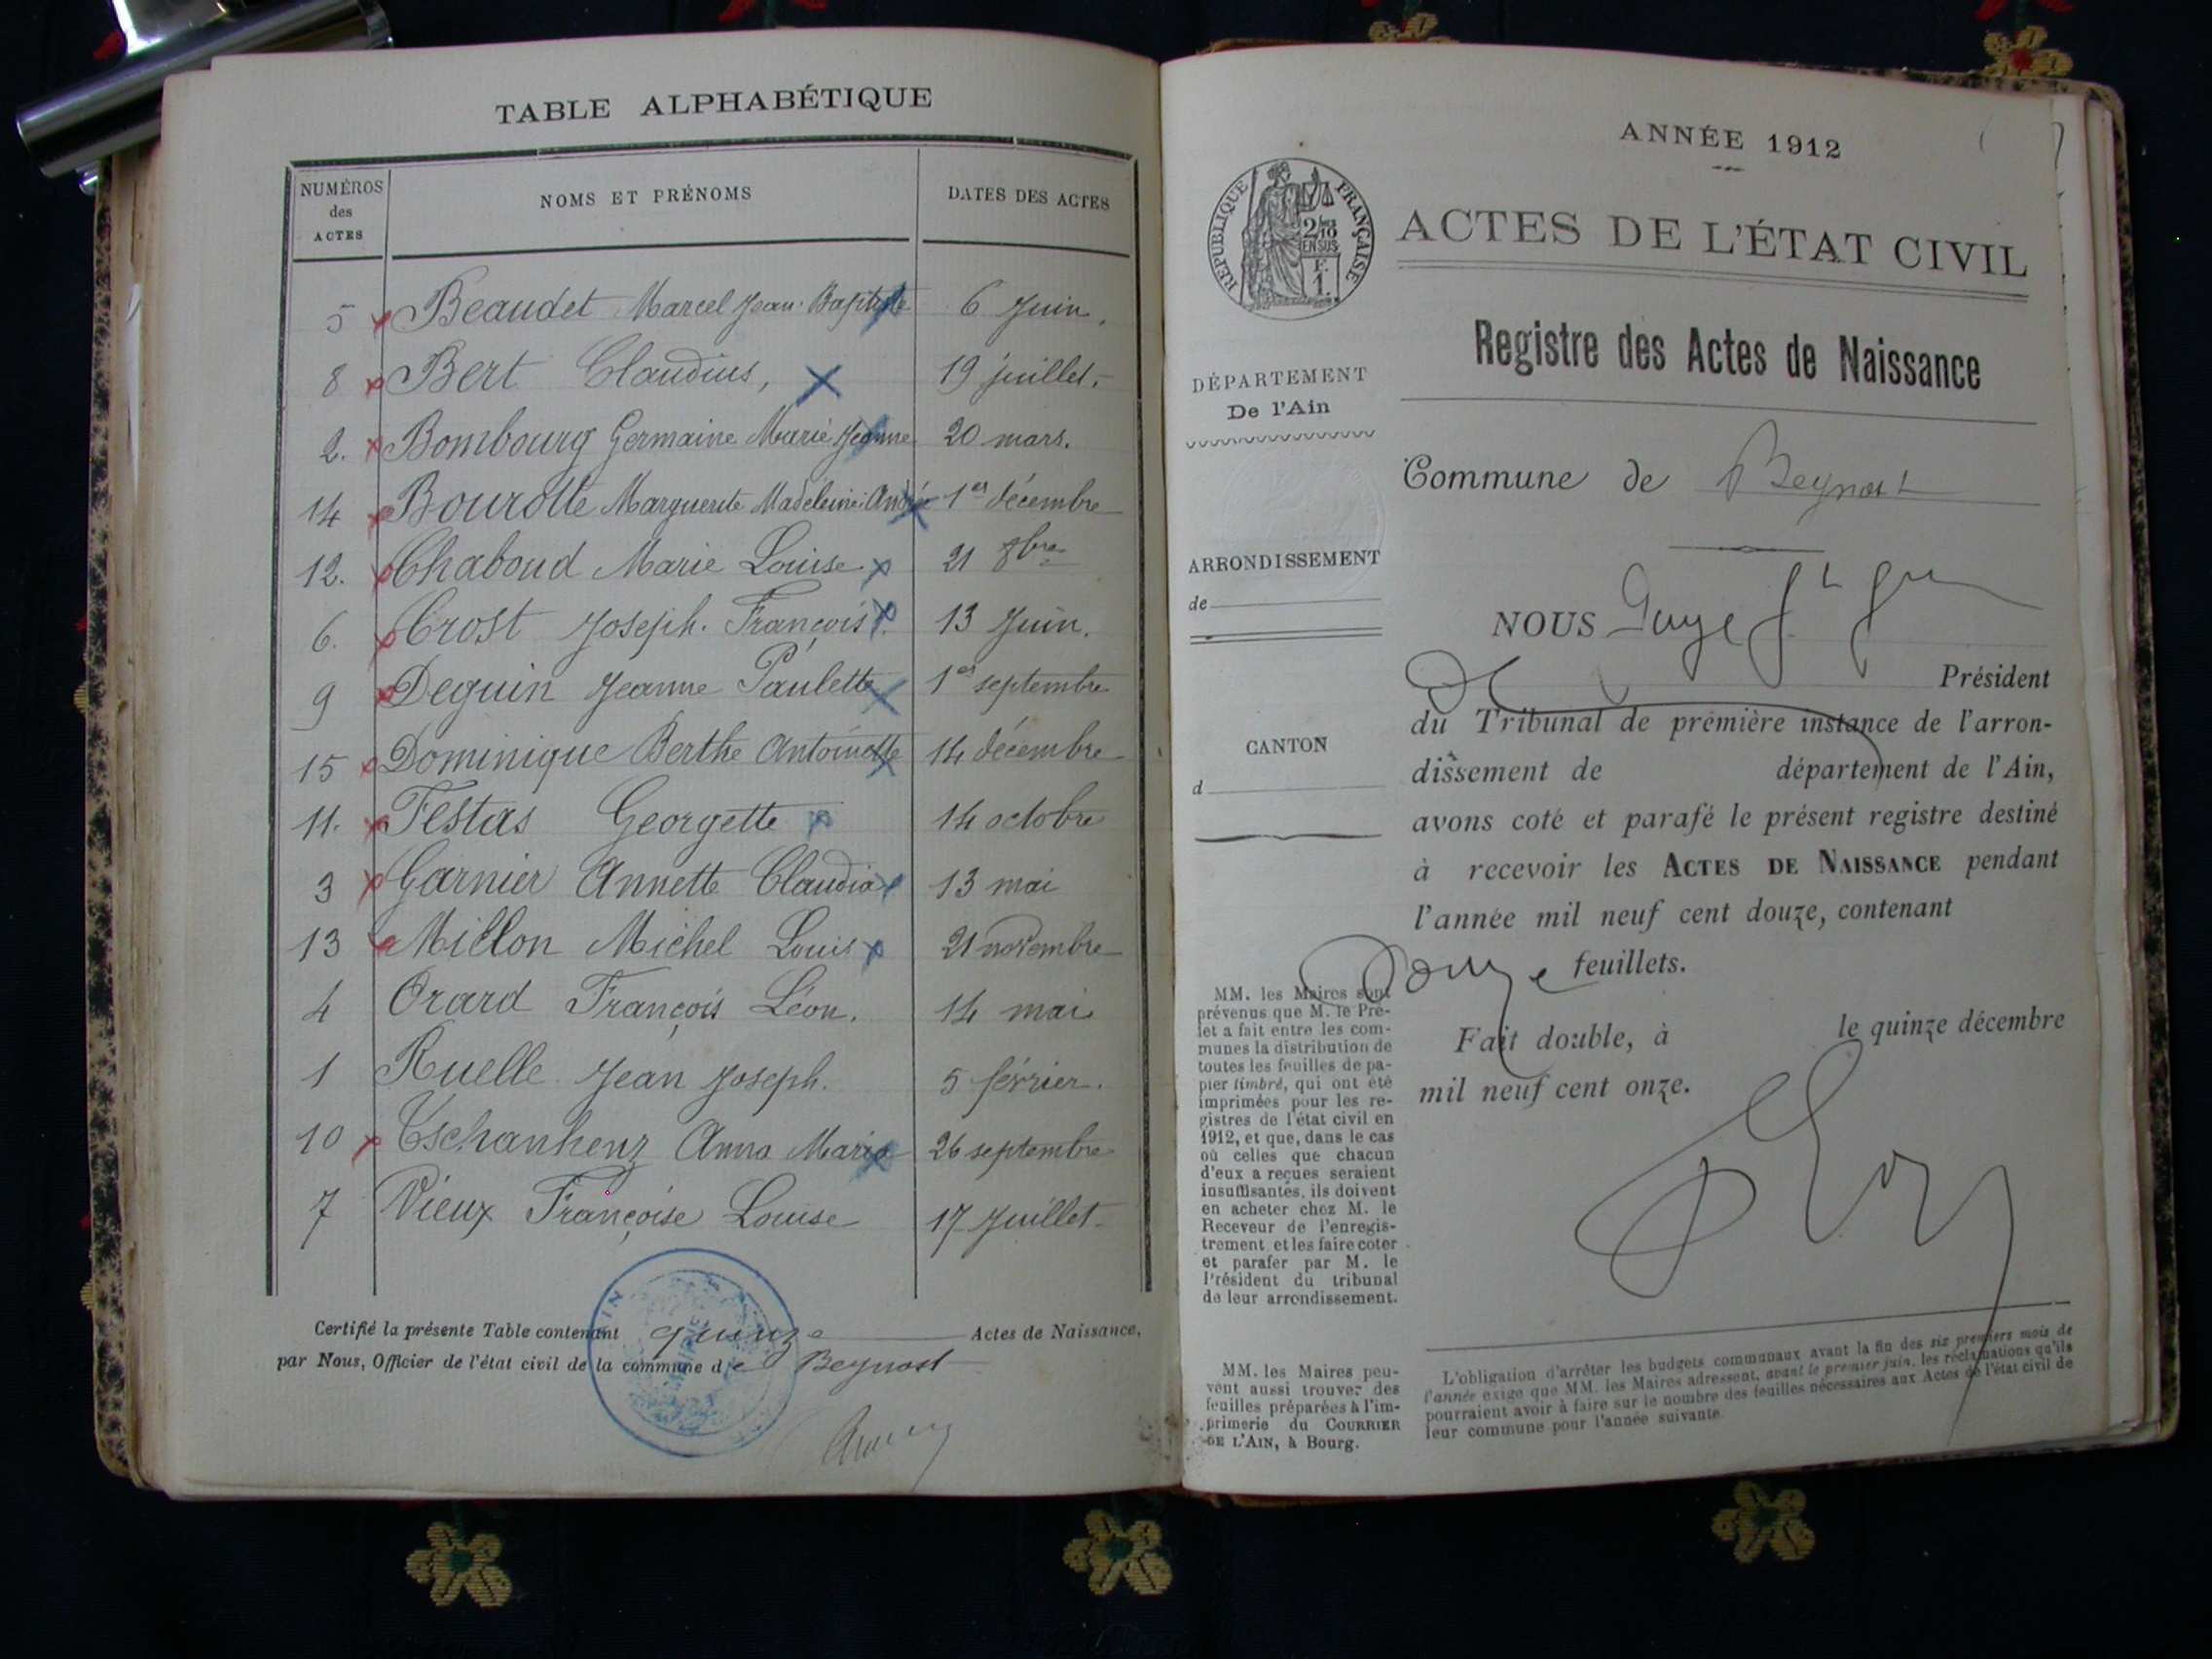 TABLE ALPHABÉTIQUE
NUMÉROS des ACTES
NOMS ET PRÉNOMS
DATES DES ACTES
5 Beaudet Marcel Jean-Baptiste 6 Juin.
8 Bert Claudius, 19 juillet.
2. Bombourg Germaine Marie Jeanne 20 mars.
14 Bourotte Marguerite Madeleine Andrée 1er décembre
12. Chaboud Marie Louise 21 8bre
6. Crost Joseph François 13 Juin.
9 Deguin Jeanne Paulette 1er septembre
15 Dominique Berthe Antoinette 14 décembre
11. Festas Georgette 14 octobre
3 Garnier Annette Claudia 13 mai
13 Millon Michel Louis 21 novembre
4 Orard François Léon. 14 mai
1 Ruelle Jean Joseph. 5 février.
10 Tschanhenz Anna Maria 26 septembre
7 Vieux Françoise Louise 17 Juillet
Certifié la présente Table contenant quinze Actes de Naissance,
par Nous, Officier de l'état civil de la commune de Beynost
ANNÉE 1912
RÉPUBLIQUE FRANÇAISE
2/10
EN SUS
F.
1.
ACTES DE L'ÉTAT CIVIL
Registre des Actes de Naissance
DÉPARTEMENT
De l'Ain
Commune de Beynost
ARRONDISSEMENT
de
CANTON
d
NOUS
Président
du Tribunal de première instance de l'arron-
dissement de département de l'Ain,
avons coté et parafé le présent registre destiné
à recevoir les ACTES DE NAISSANCE pendant
l'année mil neuf cent douze, contenant
Douze feuillets.
Fait double, à le quinze décembre
mil neuf cent onze.
MM. les Maires sont
prévenus que M. le Pré-
fet a fait entre les com-
munes la distribution de
toutes les feuilles de pa-
pier timbré, qui ont été
imprimées pour les re-
gistres de l'état civil en
1912, et que, dans le cas
où celles que chacun
d'eux a reçues seraient
insuffisantes, ils doivent
en acheter chez M. le
Receveur de l'enregis-
trement et les faire coter
et parafer par M. le
Président du tribunal
de leur arrondissement.
MM. les Maires peu-
vent aussi trouver des
feuilles préparées à l'im-
primerie du COURRIER
DE L'AIN, à Bourg.
L'obligation d'arrêter les budgets communaux avant la fin des six premiers mois de
l'année exige que MM. les Maires adressent, avant le premier juin, les réclamations qu'ils
pourraient avoir à faire sur le nombre des feuilles nécessaires aux Actes de l'état civil de
leur commune pour l'année suivante.